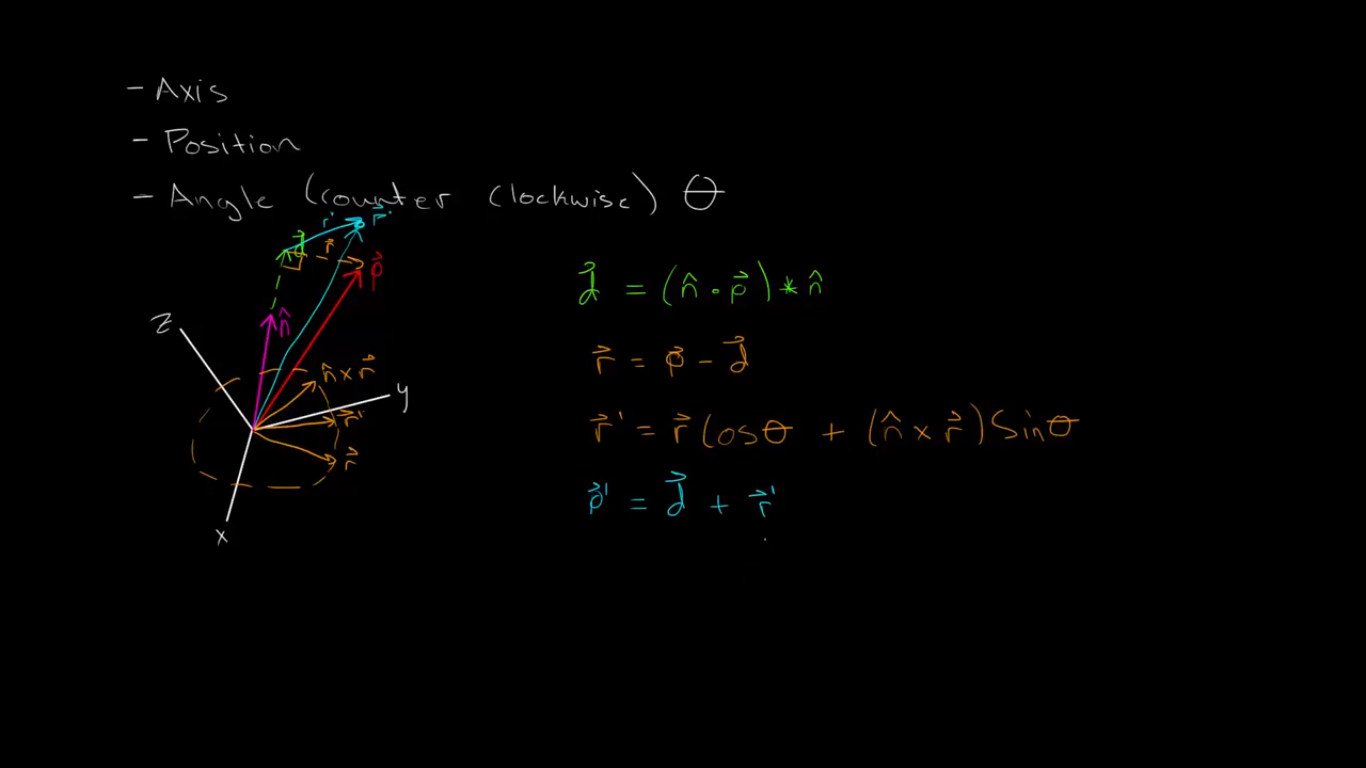 - Axis
- Position
- Angle (counter clockwise) θ
r' p⃗'
d⃗ r⃗ p⃗
z n̂
n̂ × r⃗
y
r⃗'
r⃗
x
d⃗ = (n̂ • p⃗) * n̂
r⃗ = p⃗ - d⃗
r⃗' = r⃗ Cosθ + (n̂ × r⃗) Sinθ
p⃗' = d⃗ + r⃗'